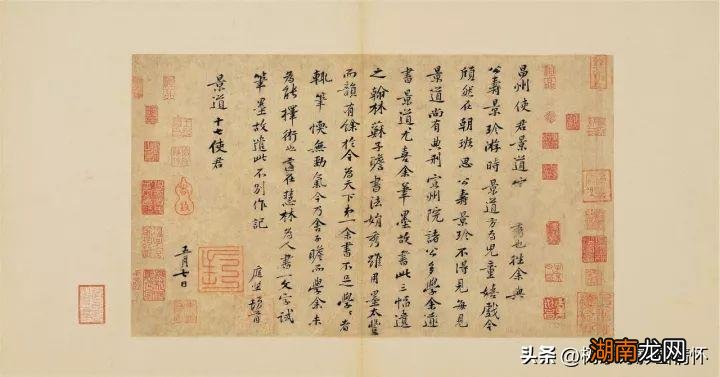 昌州使君景道宗秀也往余與
公壽景珍游時景道方為兒童嬉戲今
頎然在朝班思公壽景珍不得見每見
景道尚有典刑宣州院諸公多學余
書景道尤喜余筆墨故書此三幅遺
之翰林蘇子瞻書法娟秀雖用墨太豐
而韻有餘於今為天下第一余書不足學學者
輒筆愞無勁氣今乃舍子瞻而學余未
為能擇術也適在慧林為人書一文字試
筆墨故遣此不別作記
庭堅頓首
景道十七使君
五月七日
头条 @
情怀
湖南龙网